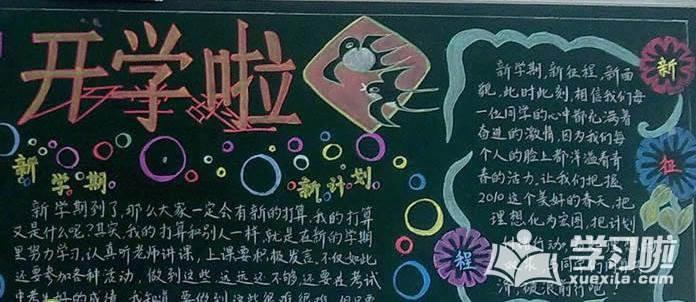 开学啦
新学期 新计划
新学期到了,那么大家一定会有新的打算,我的打算
又是什么呢?其实,我的打算和别人一样,就是在新的学期
里努力学习,认真听老师讲课,上课要积极发言,不仅如此
还要参加各种活动,做到这些,这远还不够还要在考试
中考出好的成绩,我知道,要做到这些很难很难,但只要
新征程
新学期,新征程,新面
貌,此时此刻,相信我们每
一位同学的心中都充满着
奋进的激情,因为我们每
个人的脸上都洋溢着青
春的活力,让我们把握
2010这个美好的春天,把
理想化为宏图,把计划
行动
同
浪前行吧!
学习啦
xuexila.com